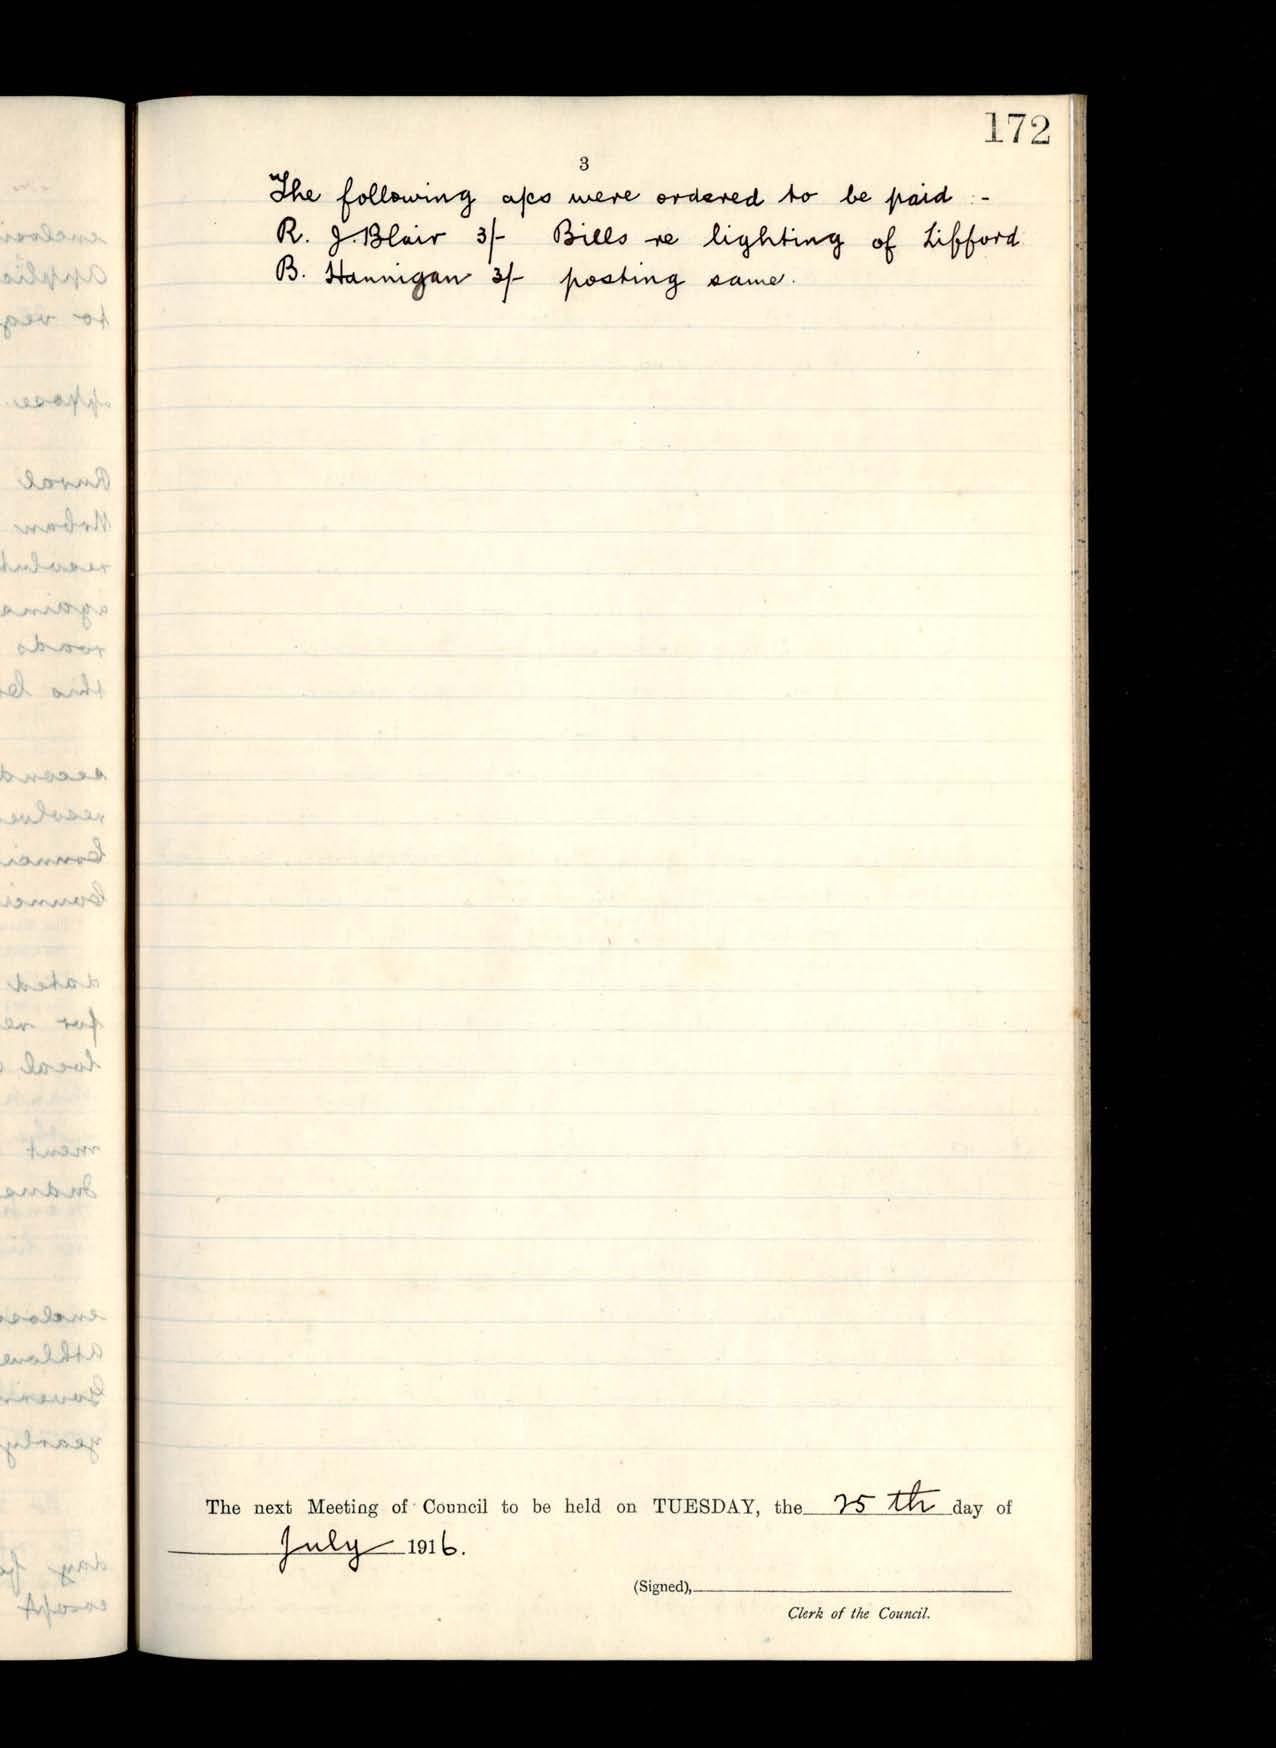 172
3
The following a/cs were ordered to be paid :-
R. J. Blair 3/- Bills re lighting of Lifford
B. Hannigan 3/- posting same.
The next Meeting of Council to be held on TUESDAY, the 25th day of
July 1916.
(Signed),
Clerk of the Council.